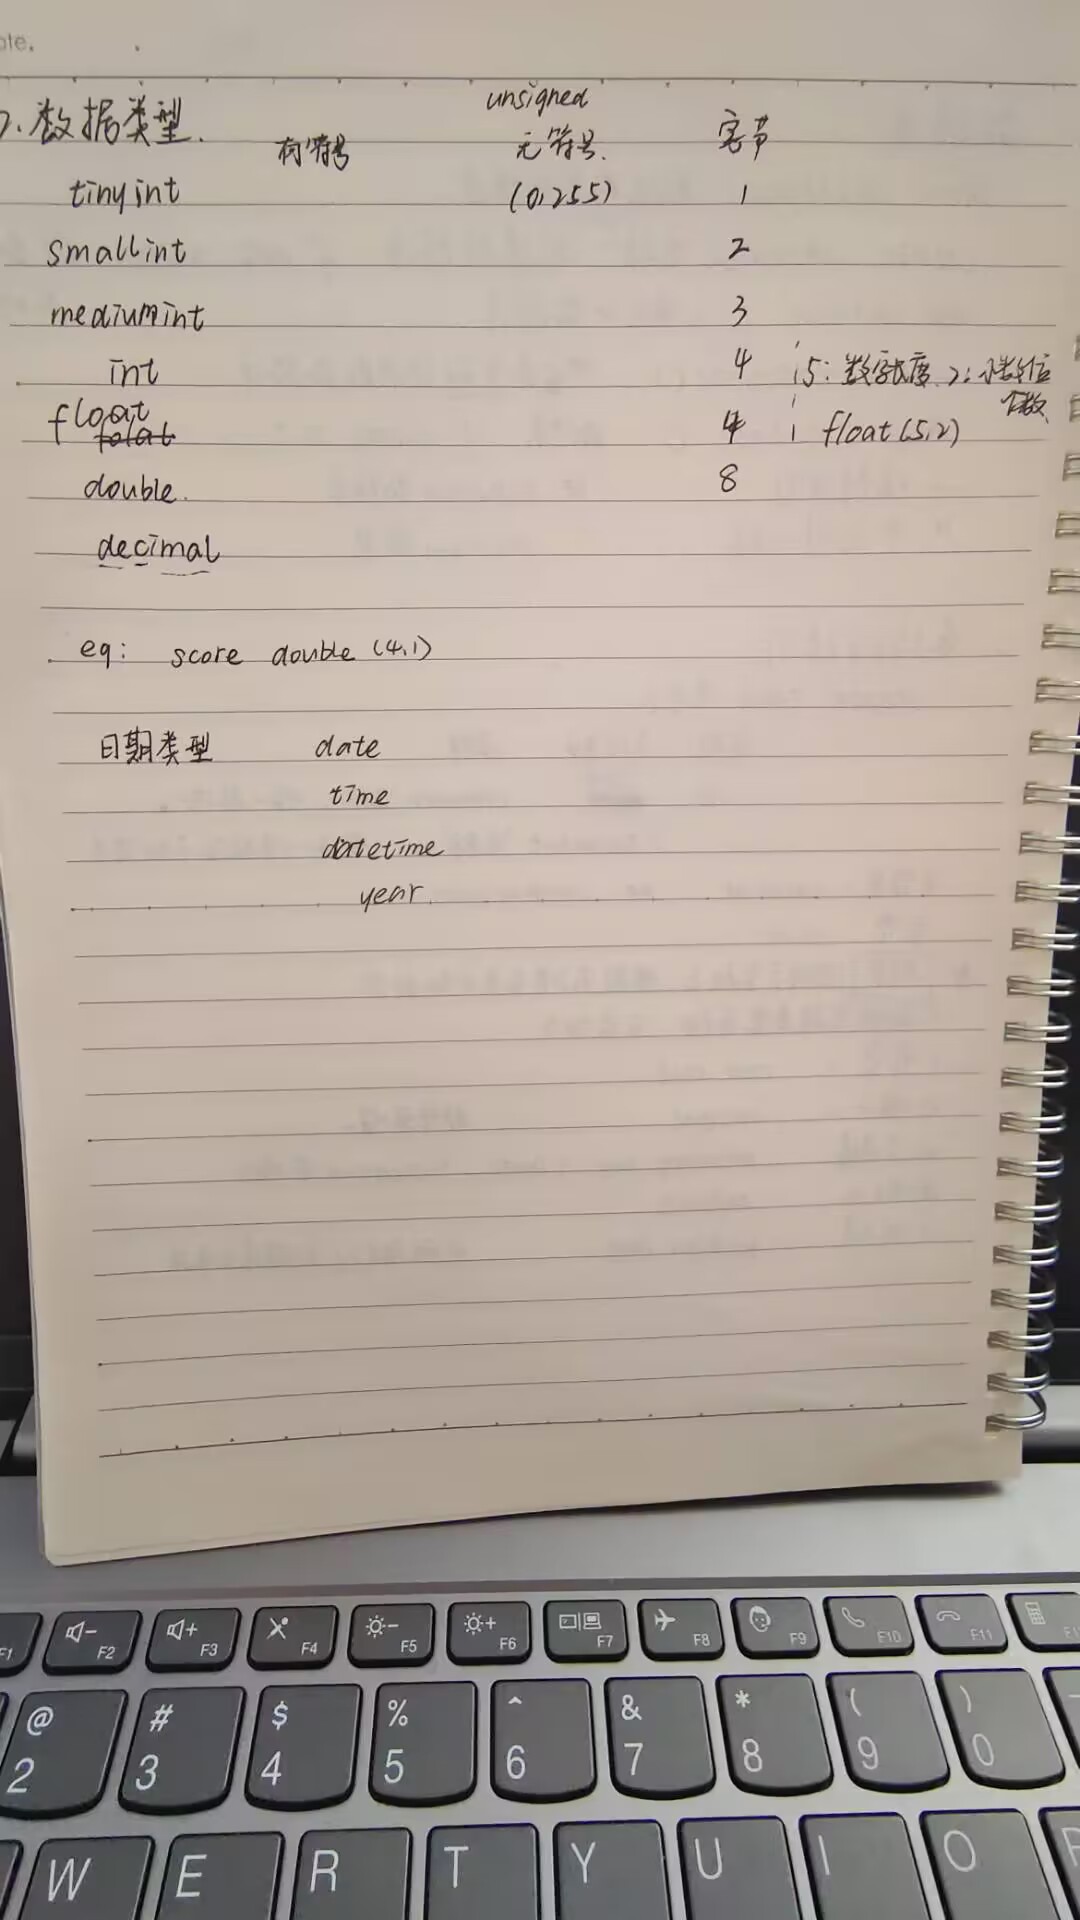 ote.
2.数据类型.
unsigned
有符号 无符号. 字节
tinyint (0,255) 1
smallint 2
mediumint 3
int 4 5:数字长度 2:小数位个数
float
folat 4 float(5,2)
double. 8
decimal
eg: score double(4,1)
日期类型 date
time
datetime
year.
F1 F2 F3 F4 F5 F6 F7 F8 F9 F10 F11
@ # $ % ^ & * ( )
2 3 4 5 6 7 8 9 0
W E R T Y U I O